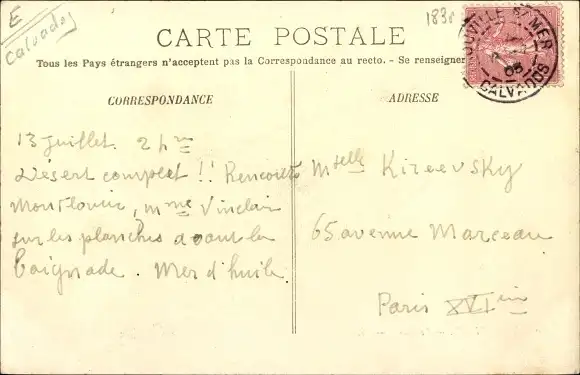 E
Calvados
183
CARTE POSTALE
Tous les Pays étrangers n'acceptent pas la Correspondance au recto. - Se renseigner
CORRESPONDANCE
13 juillet. 2 h
Désert complet !! Rencontré
Montlouis, Mme Vinclair
sur les planches avant la
baignade. Mer d'huile
ADRESSE
Mselle Kireevsky
65 avenue Marceau
Paris XVIim
VILLE S/ MER
05
CALVADOS